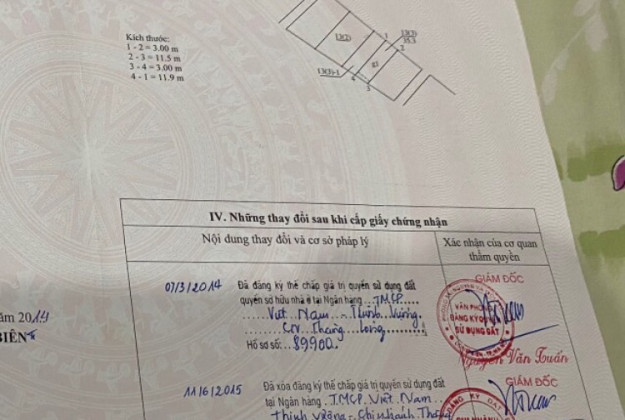 Kích thước:
1 - 2 = 3.00 m
2 - 3 = 11.5 m
3 - 4 = 3.00 m
4 - 1 = 11.9 m
13(2)
1
2
35.3
4
3
13(3)-1
ăm 2014
BIÊN
IV. Những thay đổi sau khi cấp giấy chứng nhận
Nội dung thay đổi và cơ sở pháp lý
Xác nhận của cơ quan
thẩm quyền
07/3/2014 Đã đăng ký thế chấp giá trị quyền sử dụng đất
quyền sở hữu nhà ở tại Ngân hàng. TMCP
Việt Nam - Thịnh Vượng
CN Thăng Long
Hồ sơ số: 89900.
GIÁM ĐỐC
VĂN PHÒNG
ĐĂNG KÝ
SỬ DỤNG ĐẤT
Nguyễn Văn Tuấn
11/6/2015 Đã xóa đăng ký thế chấp giá trị quyền sử dụng đất
tại Ngân hàng. T.M.C.P. Việt Nam
Thịnh Vượng - Chi nhánh Thăng
GIÁM ĐỐC